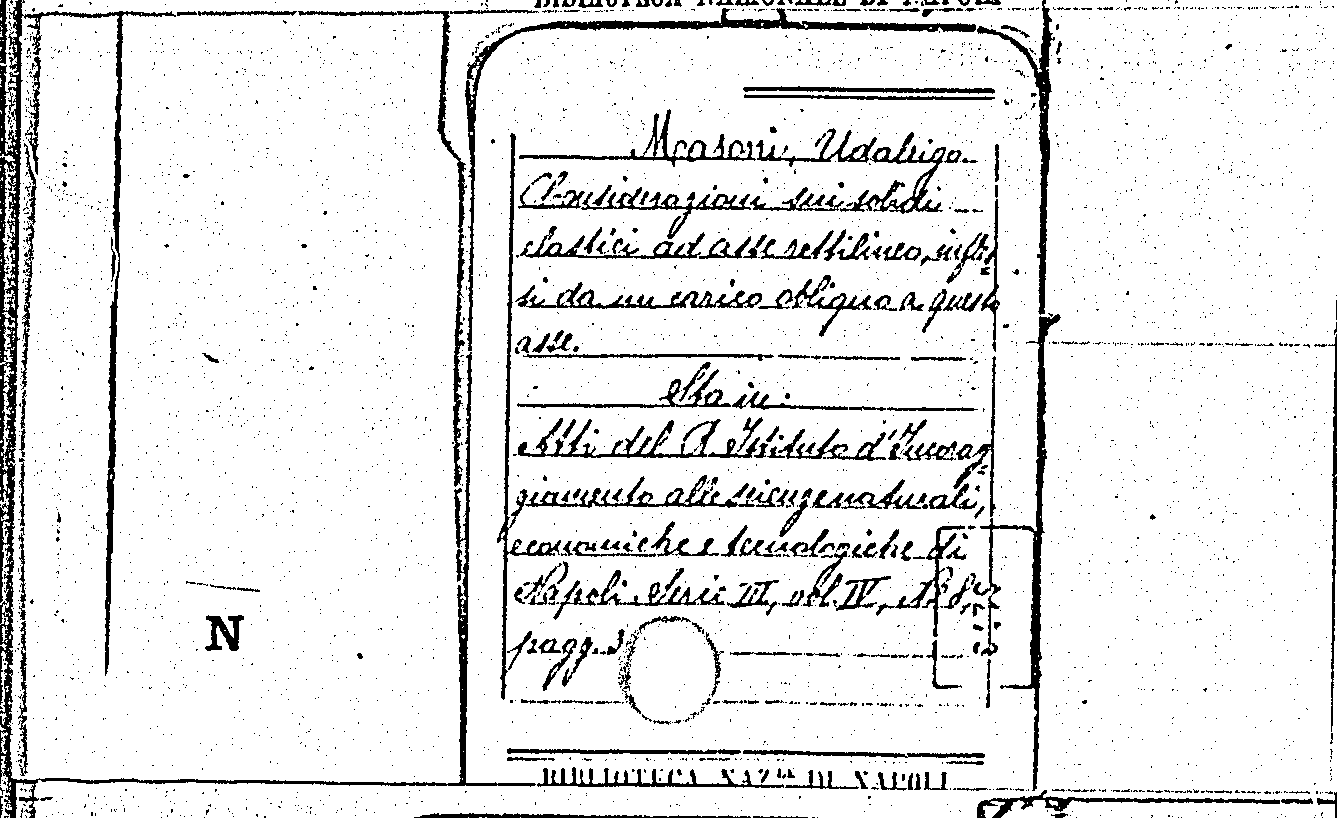 BIBLIOTECA NAZIONALE DI NAPOLI
Masoni, Udalrigo.
Considerazioni sui solidi
elastici ad asse rettilineo, infles
si da un carico obliquo a questo
asse.
Sta in:
Atti del R. Istituto d'Incorag
giamento alle scienze naturali,
economiche e tecnologiche di
Napoli. Serie III, vol. IV, N.° 8,
pagg. 3
N
BIBLIOTECA NAZ.le DI NAPOLI